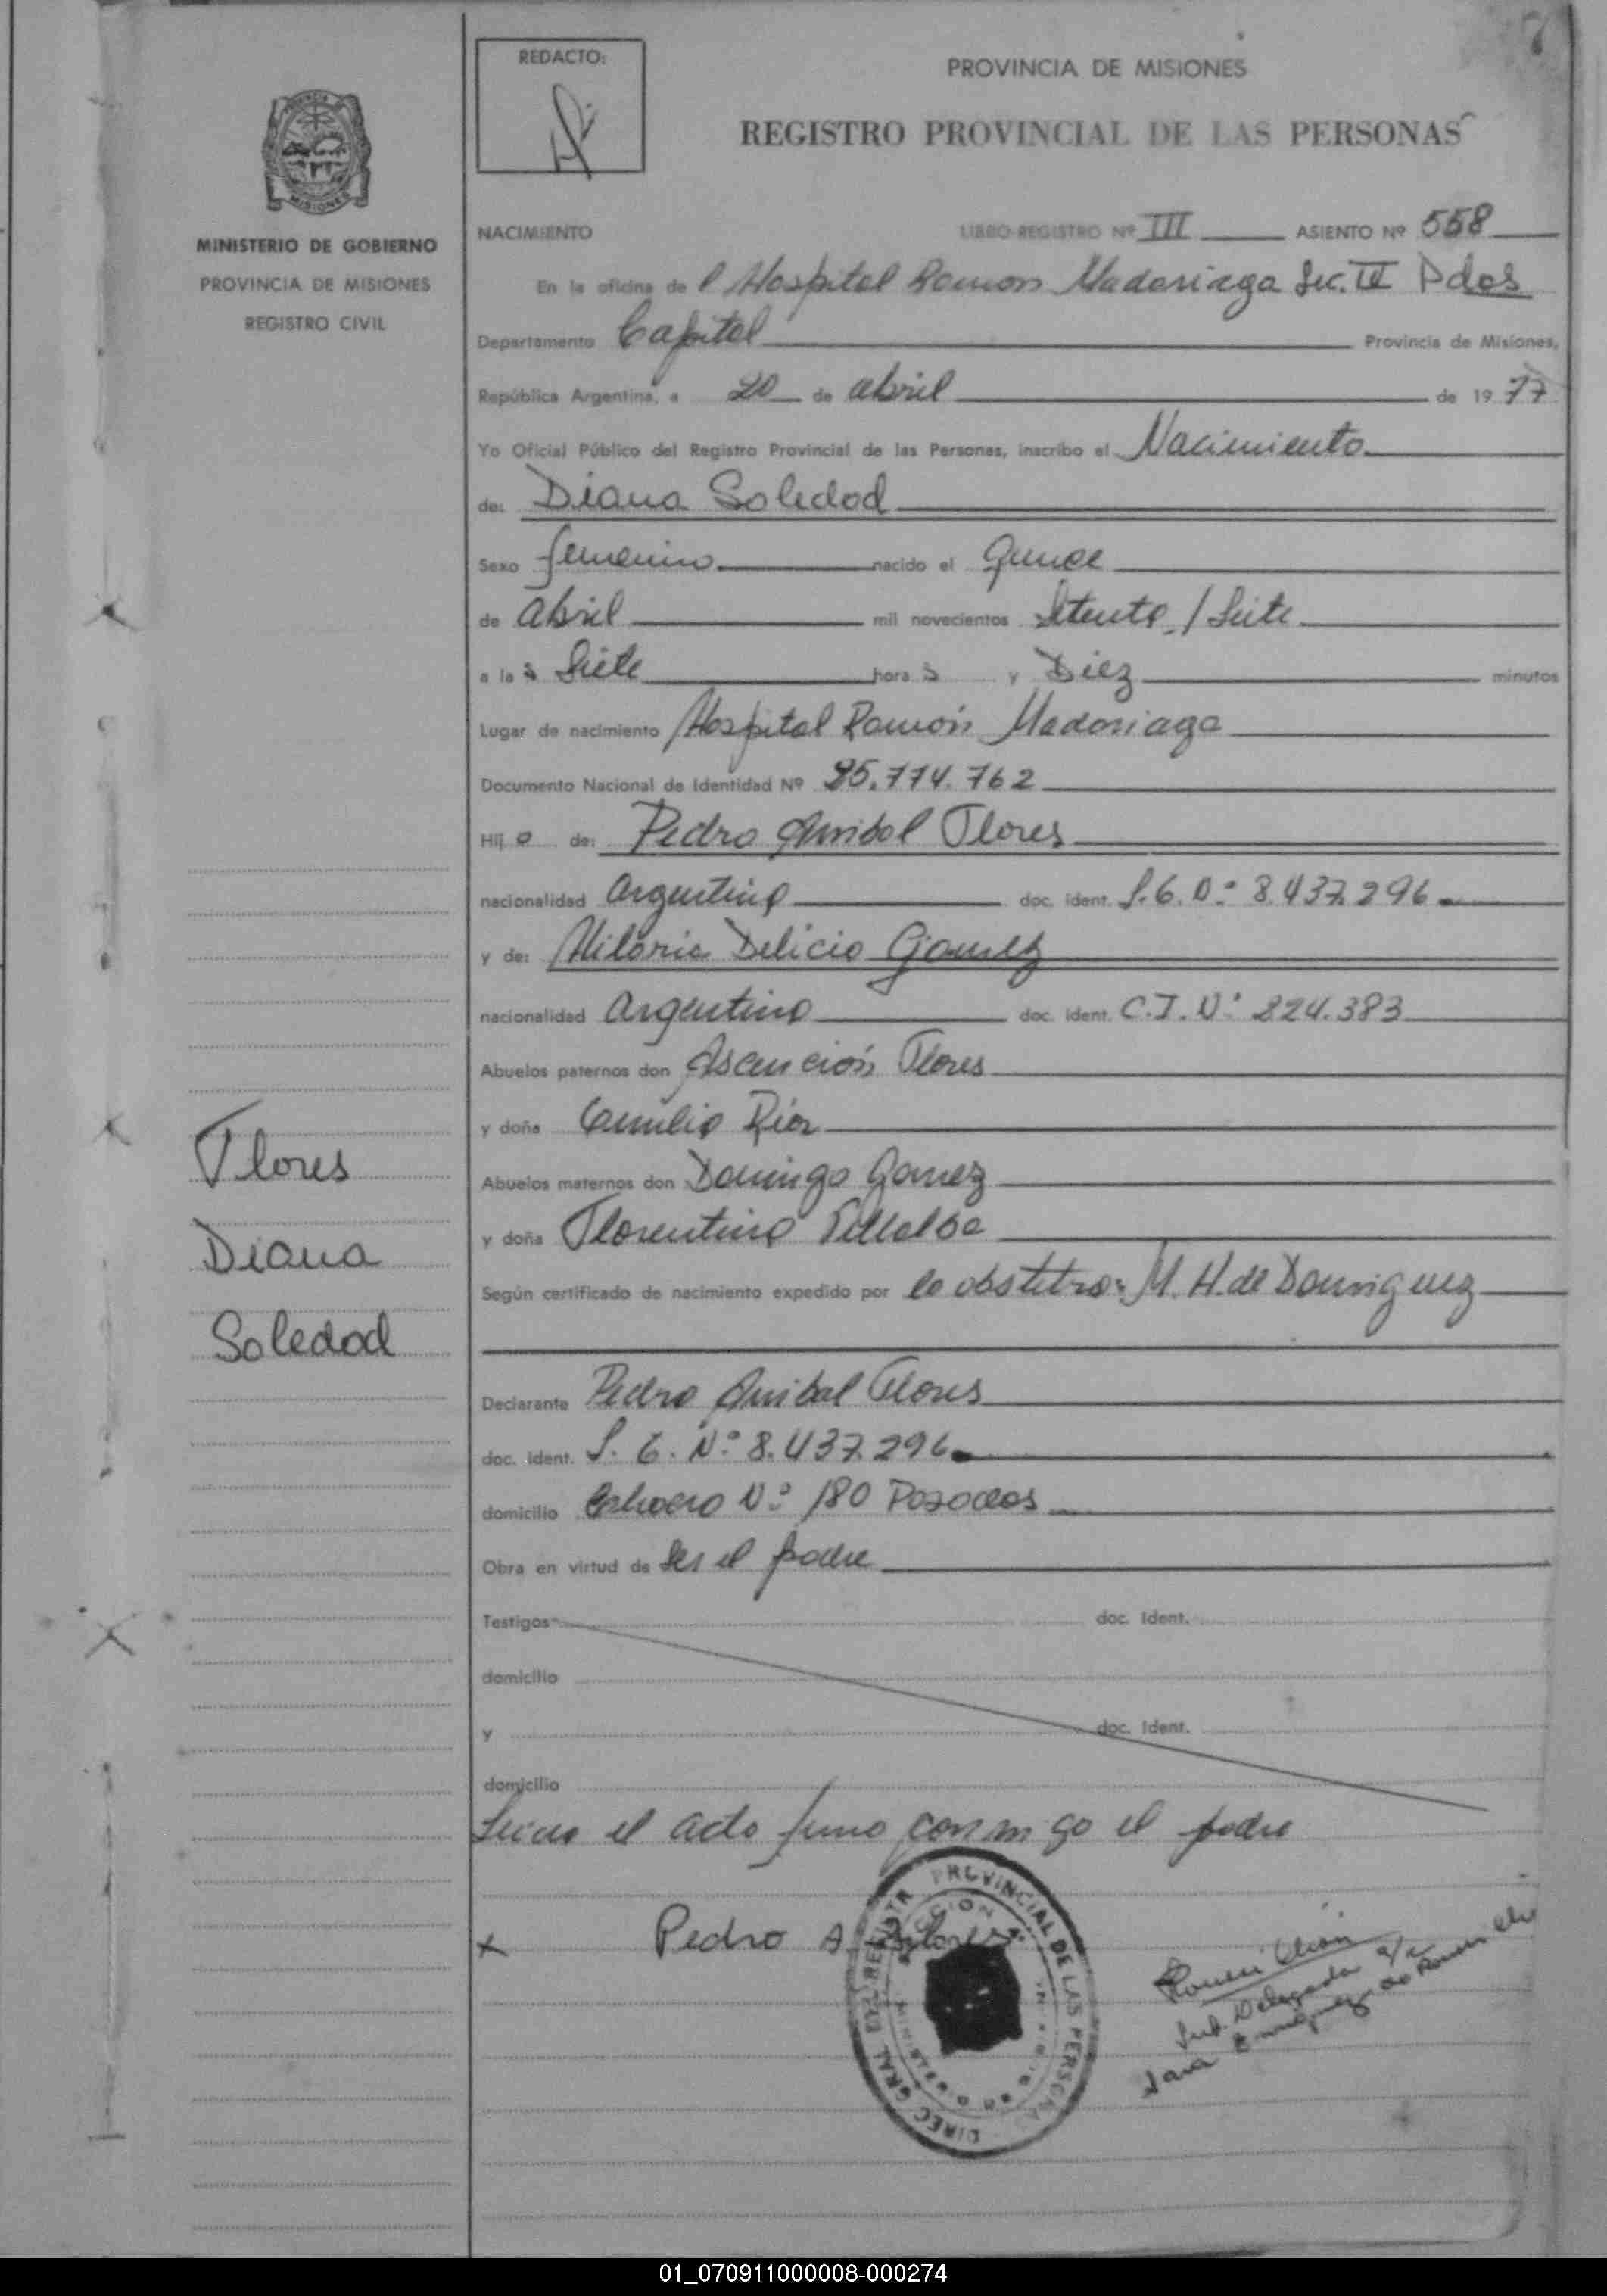 REDACTO:
PROVINCIA DE MISIONES
REGISTRO PROVINCIAL DE LAS PERSONAS
MISIONES
MINISTERIO DE GOBIERNO
PROVINCIA DE MISIONES
REGISTRO CIVIL
NACIMIENTO LIBRO-REGISTRO Nº III ASIENTO Nº 558
En la oficina de l Hospital Ramon Madariaga Sec. Pdas
Departamento Capital Provincia de Misiones,
República Argentina, a 20 de abril de 1977
Yo Oficial Público del Registro Provincial de las Personas, inscribo el Nacimiento
de: Diana Soledad
Sexo femenino nacido el Quince
de abril mil novecientos Setenta / Siete
a la s Siete hora s y Diez minutos
Lugar de nacimiento Hospital Ramón Madariaga
Documento Nacional de Identidad Nº 25.774.762
Hij a de: Pedro Anibal Flores
nacionalidad argentina doc. ident. Nº 8.437.296
y de: Hilaria Delicia Gomez
nacionalidad argentina doc. ident. C.I. Nº 224.383
Abuelos paternos don Ascención Flores
y doña Emilia
Abuelos maternos don Domingo Gomez
y doña Florentina Villalba
Según certificado de nacimiento expedido por la obstetra: M. H. de Dominguez
Declarante Pedro Anibal Flores
doc. ident. Nº 8.437.296
domicilio Nº 180 Posadas
Obra en virtud de ser el padre
Testigos doc. Ident.
domicilio
y doc. Ident.
domicilio
el acto firma conmigo el padre
Flores
Diana
Soledad
x Pedro A Flores
DIREC. GRAL. PROVINCIAL DE LAS PERSONA
Sub. Delegada a/c
Sara
01_070911000008-000274